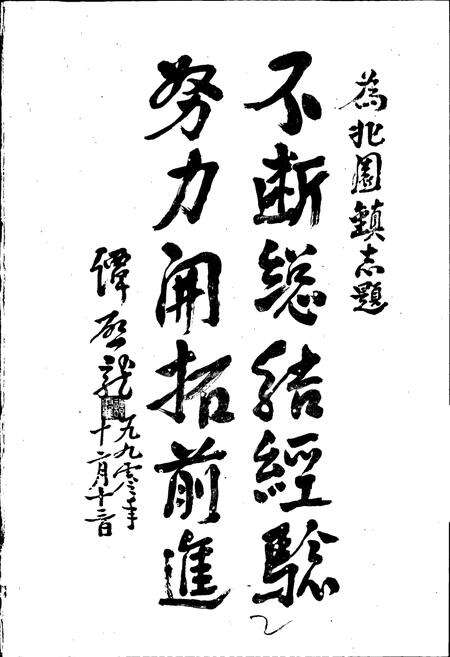 為北園鎮志題
不断總结經驗
努力開拓前進
譚啓龍
一九九零年
十二月十二日